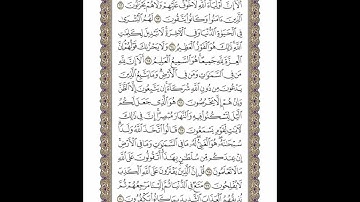 أَلَآ إِنَّ أَوْلِيَآءَ ٱللَّهِ لَا خَوْفٌ عَلَيْهِمْ وَلَا هُمْ يَحْزَنُونَ ۝٦٢
ٱلَّذِينَ ءَامَنُوا۟ وَكَانُوا۟ يَتَّقُونَ ۝٦٣ لَهُمُ ٱلْبُشْرَىٰ
فِى ٱلْحَيَوٰةِ ٱلدُّنْيَا وَفِى ٱلْءَاخِرَةِ لَا تَبْدِيلَ لِكَلِمَٰتِ
ٱللَّهِ ذَٰلِكَ هُوَ ٱلْفَوْزُ ٱلْعَظِيمُ ۝٦٤ وَلَا يَحْزُنكَ قَوْلُهُمْ إِنَّ
ٱلْعِزَّةَ لِلَّهِ جَمِيعًا هُوَ ٱلسَّمِيعُ ٱلْعَلِيمُ ۝٦٥ أَلَآ إِنَّ لِلَّهِ
مَن فِى ٱلسَّمَٰوَٰتِ وَمَن فِى ٱلْأَرْضِ وَمَا يَتَّبِعُ ٱلَّذِينَ
يَدْعُونَ مِن دُونِ ٱللَّهِ شُرَكَآءَ إِن يَتَّبِعُونَ إِلَّا ٱلظَّنَّ
وَإِنْ هُمْ إِلَّا يَخْرُصُونَ ۝٦٦ هُوَ ٱلَّذِى جَعَلَ لَكُمُ
ٱلَّيْلَ لِتَسْكُنُوا۟ فِيهِ وَٱلنَّهَارَ مُبْصِرًا إِنَّ فِى ذَٰلِكَ
لَءَايَٰتٍ لِّقَوْمٍ يَسْمَعُونَ ۝٦٧ قَالُوا۟ ٱتَّخَذَ ٱللَّهُ وَلَدًا
سُبْحَٰنَهُۥ هُوَ ٱلْغَنِىُّ لَهُۥ مَا فِى ٱلسَّمَٰوَٰتِ وَمَا فِى ٱلْأَرْضِ
إِنْ عِندَكُم مِّن سُلْطَٰنٍۭ بِهَٰذَآ أَتَقُولُونَ عَلَى ٱللَّهِ
مَا لَا تَعْلَمُونَ ۝٦٨ قُلْ إِنَّ ٱلَّذِينَ يَفْتَرُونَ عَلَى ٱللَّهِ ٱلْكَذِبَ
لَا يُفْلِحُونَ ۝٦٩ مَتَٰعٌ فِى ٱلدُّنْيَا ثُمَّ إِلَيْنَا مَرْجِعُهُمْ ثُمَّ
نُذِيقُهُمُ ٱلْعَذَابَ ٱلشَّدِيدَ بِمَا كَانُوا۟ يَكْفُرُونَ ۝٧٠